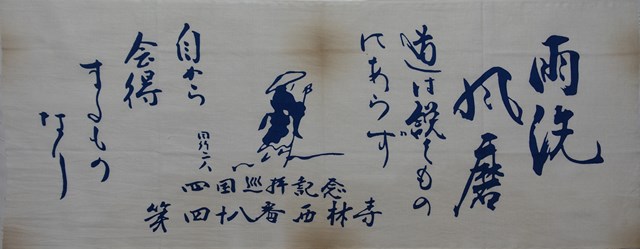 雨洗
風磨
道は説くもの
にあらず
自から
会得
するもの
なり
同行二人
四国巡拝記念
第四十八番西林寺